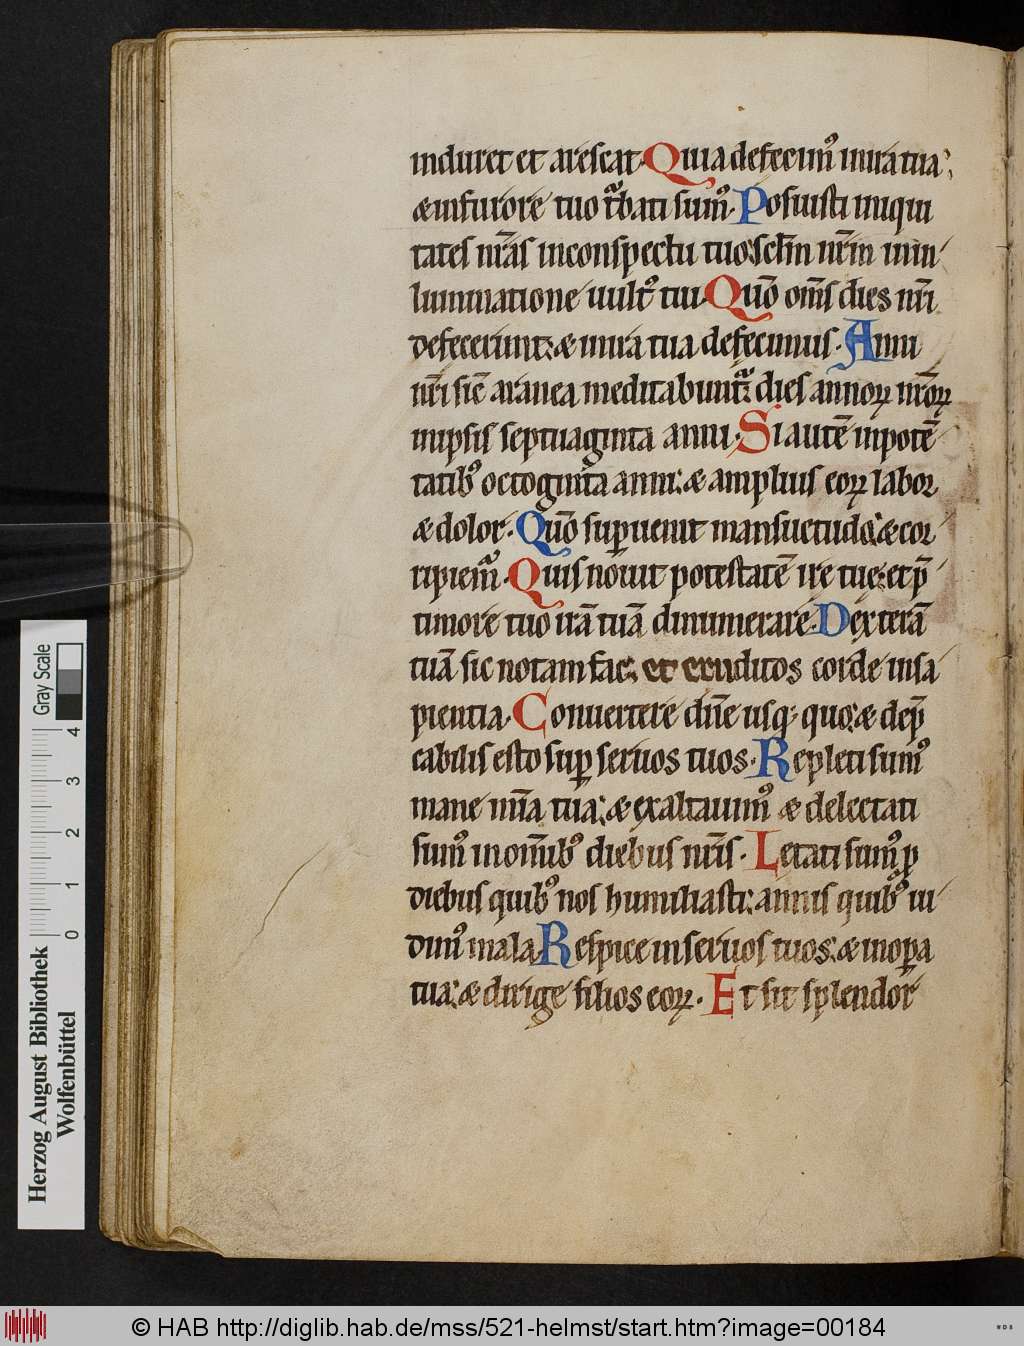 induret et arescat. Quia defecim᷒ in ira tua;
& in furore tuo t͛bati sum᷒. Posuisti iniqui
tates nr̄as in conspectu tuo: sclm̄ nr̄m in in
luminatione uult᷒ tui. Qūo om̄s dies nr̄i
defecerunt: & in ira tua defecimus. Anni
nr̄i sic̄ aranea meditabunt᷑: dies annoꝝ nr̄oꝝ
in ipsis septuaginta anni. Si autē in potēn
tatib᷒ octoginta anni: & amplius eoꝝ labor
& dolor. Qūo suꝑuenit mansuetudo: & cor
ripiem᷑. Quis nouit potestatē ire tuę: et p̄
timore tuo irā tuā dinumerare. Dexterā
tuā sic notam fac: et eruditos corde in sa
pientia. Conuertere dn̄e usq; quo: & dep̄
cabilis esto suꝑ seruos tuos. Repleti sum᷒
mane mīa tua: & exaltauim᷒ & delectati
sum᷒ in om̄ib᷒ diebus nr̄is. Letati sum᷒ ꝓ
diebus quib᷒ nos humiliasti: annis quib᷒ ui
dim᷒ mala. Respice in seruos tuos: & in oꝑa
tua: & dirige filios eoꝝ. Et sit splendor
Gray Scale
0 1 2 3 4
Herzog August Bibliothek
Wolfenbüttel
© HAB http://diglib.hab.de/mss/521-helmst/start.htm?image=00184